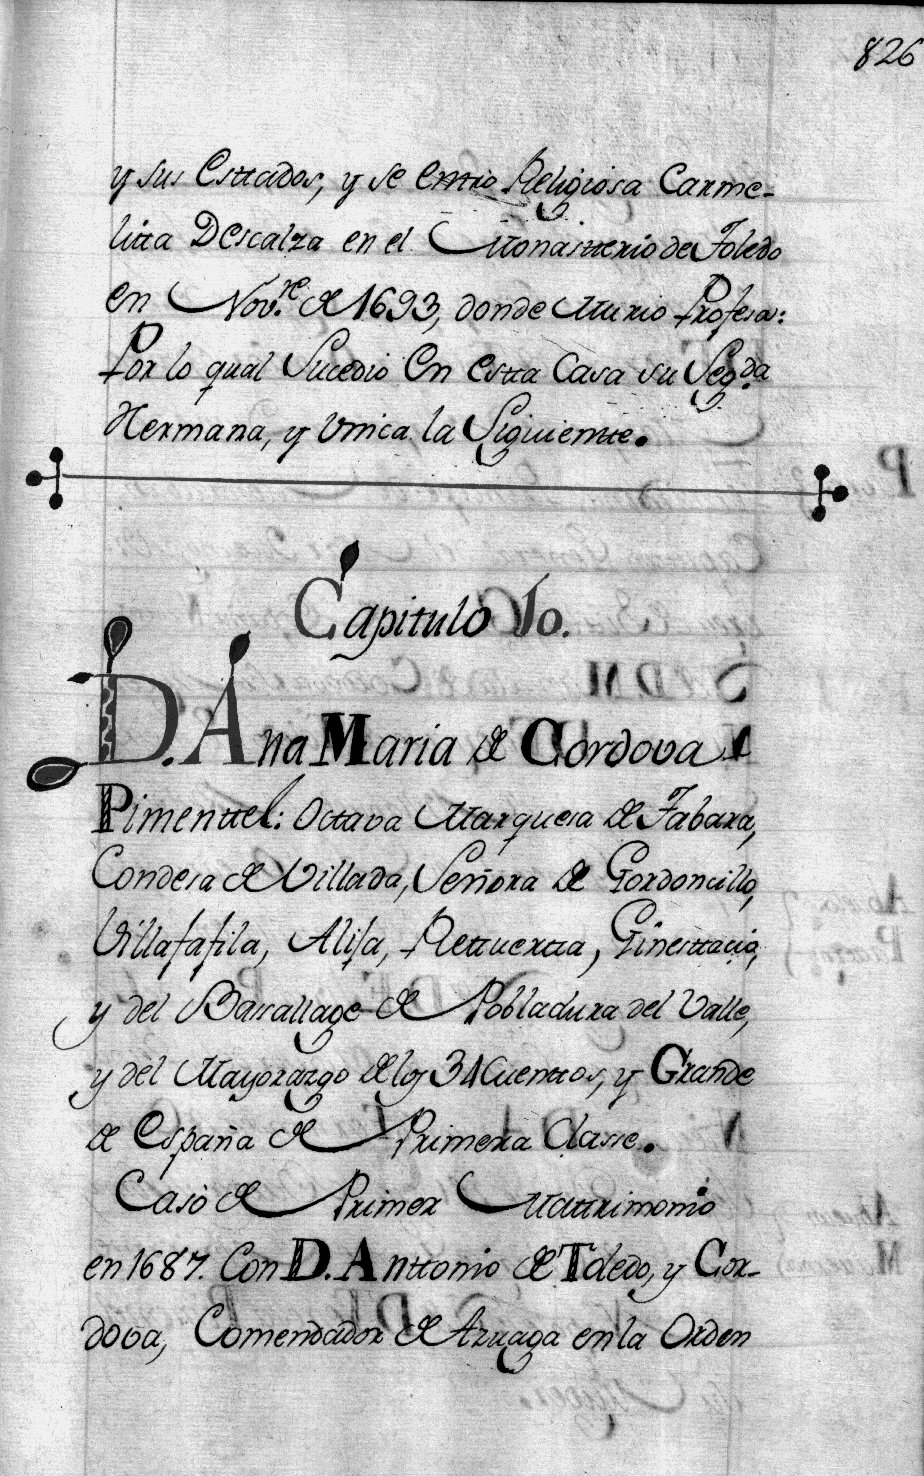 826
y sus Esttados, y se enttrò Religiosa Carme-
litta Descalza en el Monastterio de Toledo
en Nov.re de 1693, donde Murio Profesa:
Por lo qual Sucediò En estta Casa su Seg.da
Hermana, y Vnica la Siguientte.
Capitulo 10.
D. Ana Maria de Cordova
Pimenttel: Octava Marquesa de Tabara,
Condesa de Villada, Señora de Gordoncillo,
Villafafila, Alija, Rettuertta, Ginesttacio,
y del Bassallage de Pobladura del Valle,
y del Mayorazgo de los 34 Cuenttos, y Grande
de España de Primera Classe.
Casò de Primer Mattrimonio
en 1687. Con D. Anttonio de Toledo, y Cor-
dova, Comendador de Azuaga en la Orden